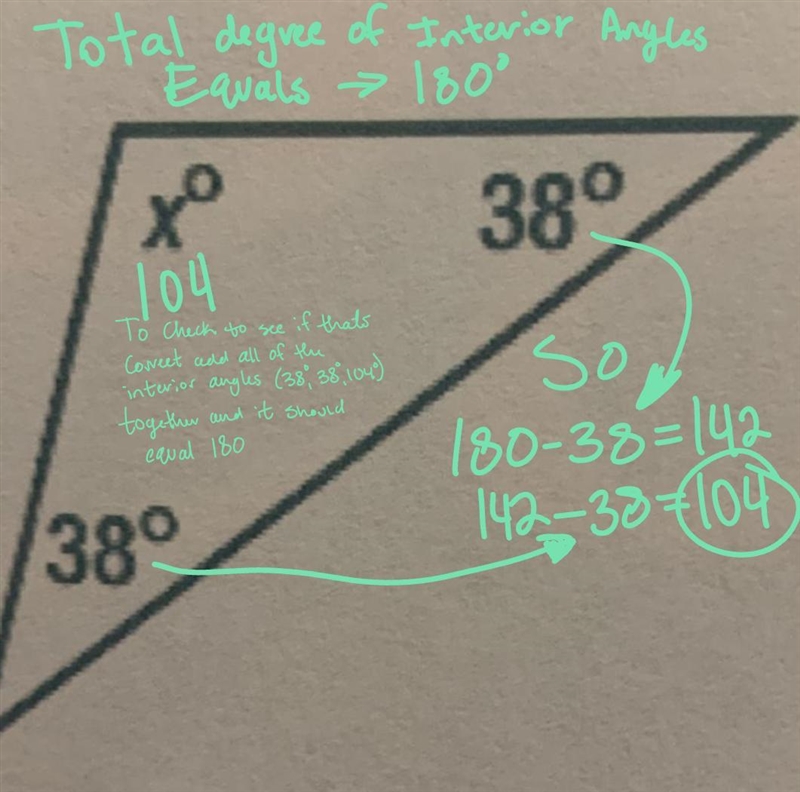 Total degree of Interior Angles
Equals → 180°
x°
38°
104
To Check to see if thats
Correct add all of the
interior angles (38°, 38°, 104°)
together and it should
equal 180
So
180-38=142
142-38=104
38°